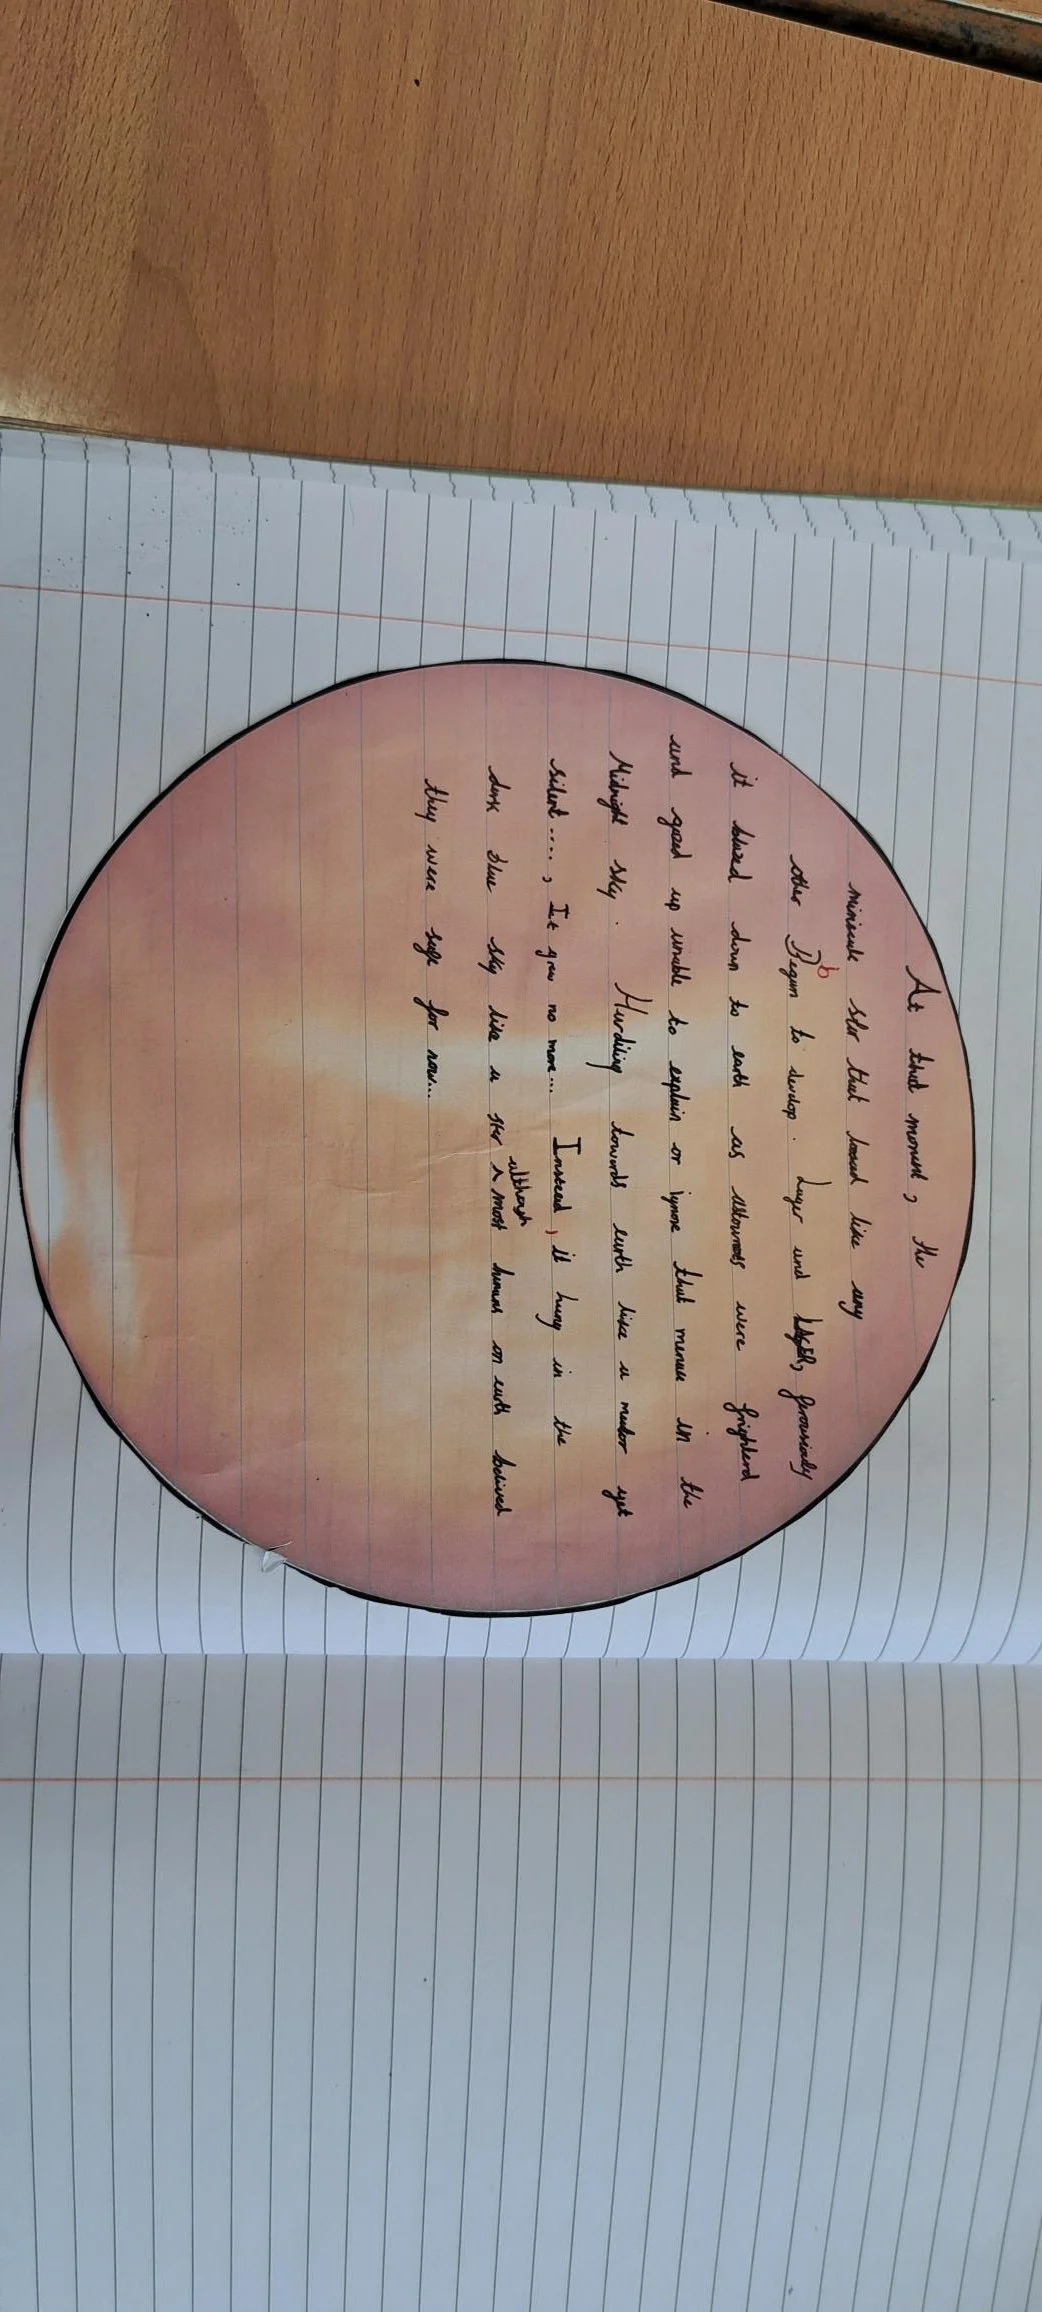 At that moment, the
miniscule star that loomed like any
other Begun to develop. Larger and ferousialy
it blazed down to earth as were frightend
and gazed up unable to explain or ignore that menace in the
Midnight sky. Hurdiling towards earth like a yet
silent...., It grew no more... Instead, it hung in the
dark blue sky like a star although most humans on earth belived
they were safe for now...